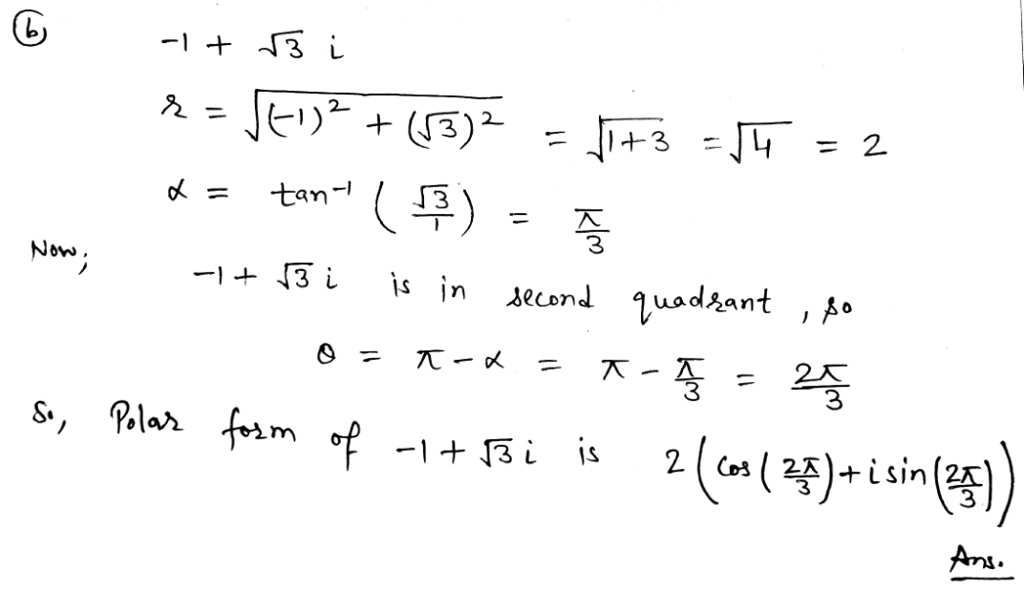 (b) -1 + √3 i
r = √((-1)² + (√3)²) = √(1+3) = √4 = 2
α = tan⁻¹ (√3/1) = π/3
Now; -1 + √3 i is in second quadrant, so
θ = π - α = π - π/3 = 2π/3
So, Polar form of -1 + √3 i is 2(cos(2π/3) + i sin(2π/3))
Ans.